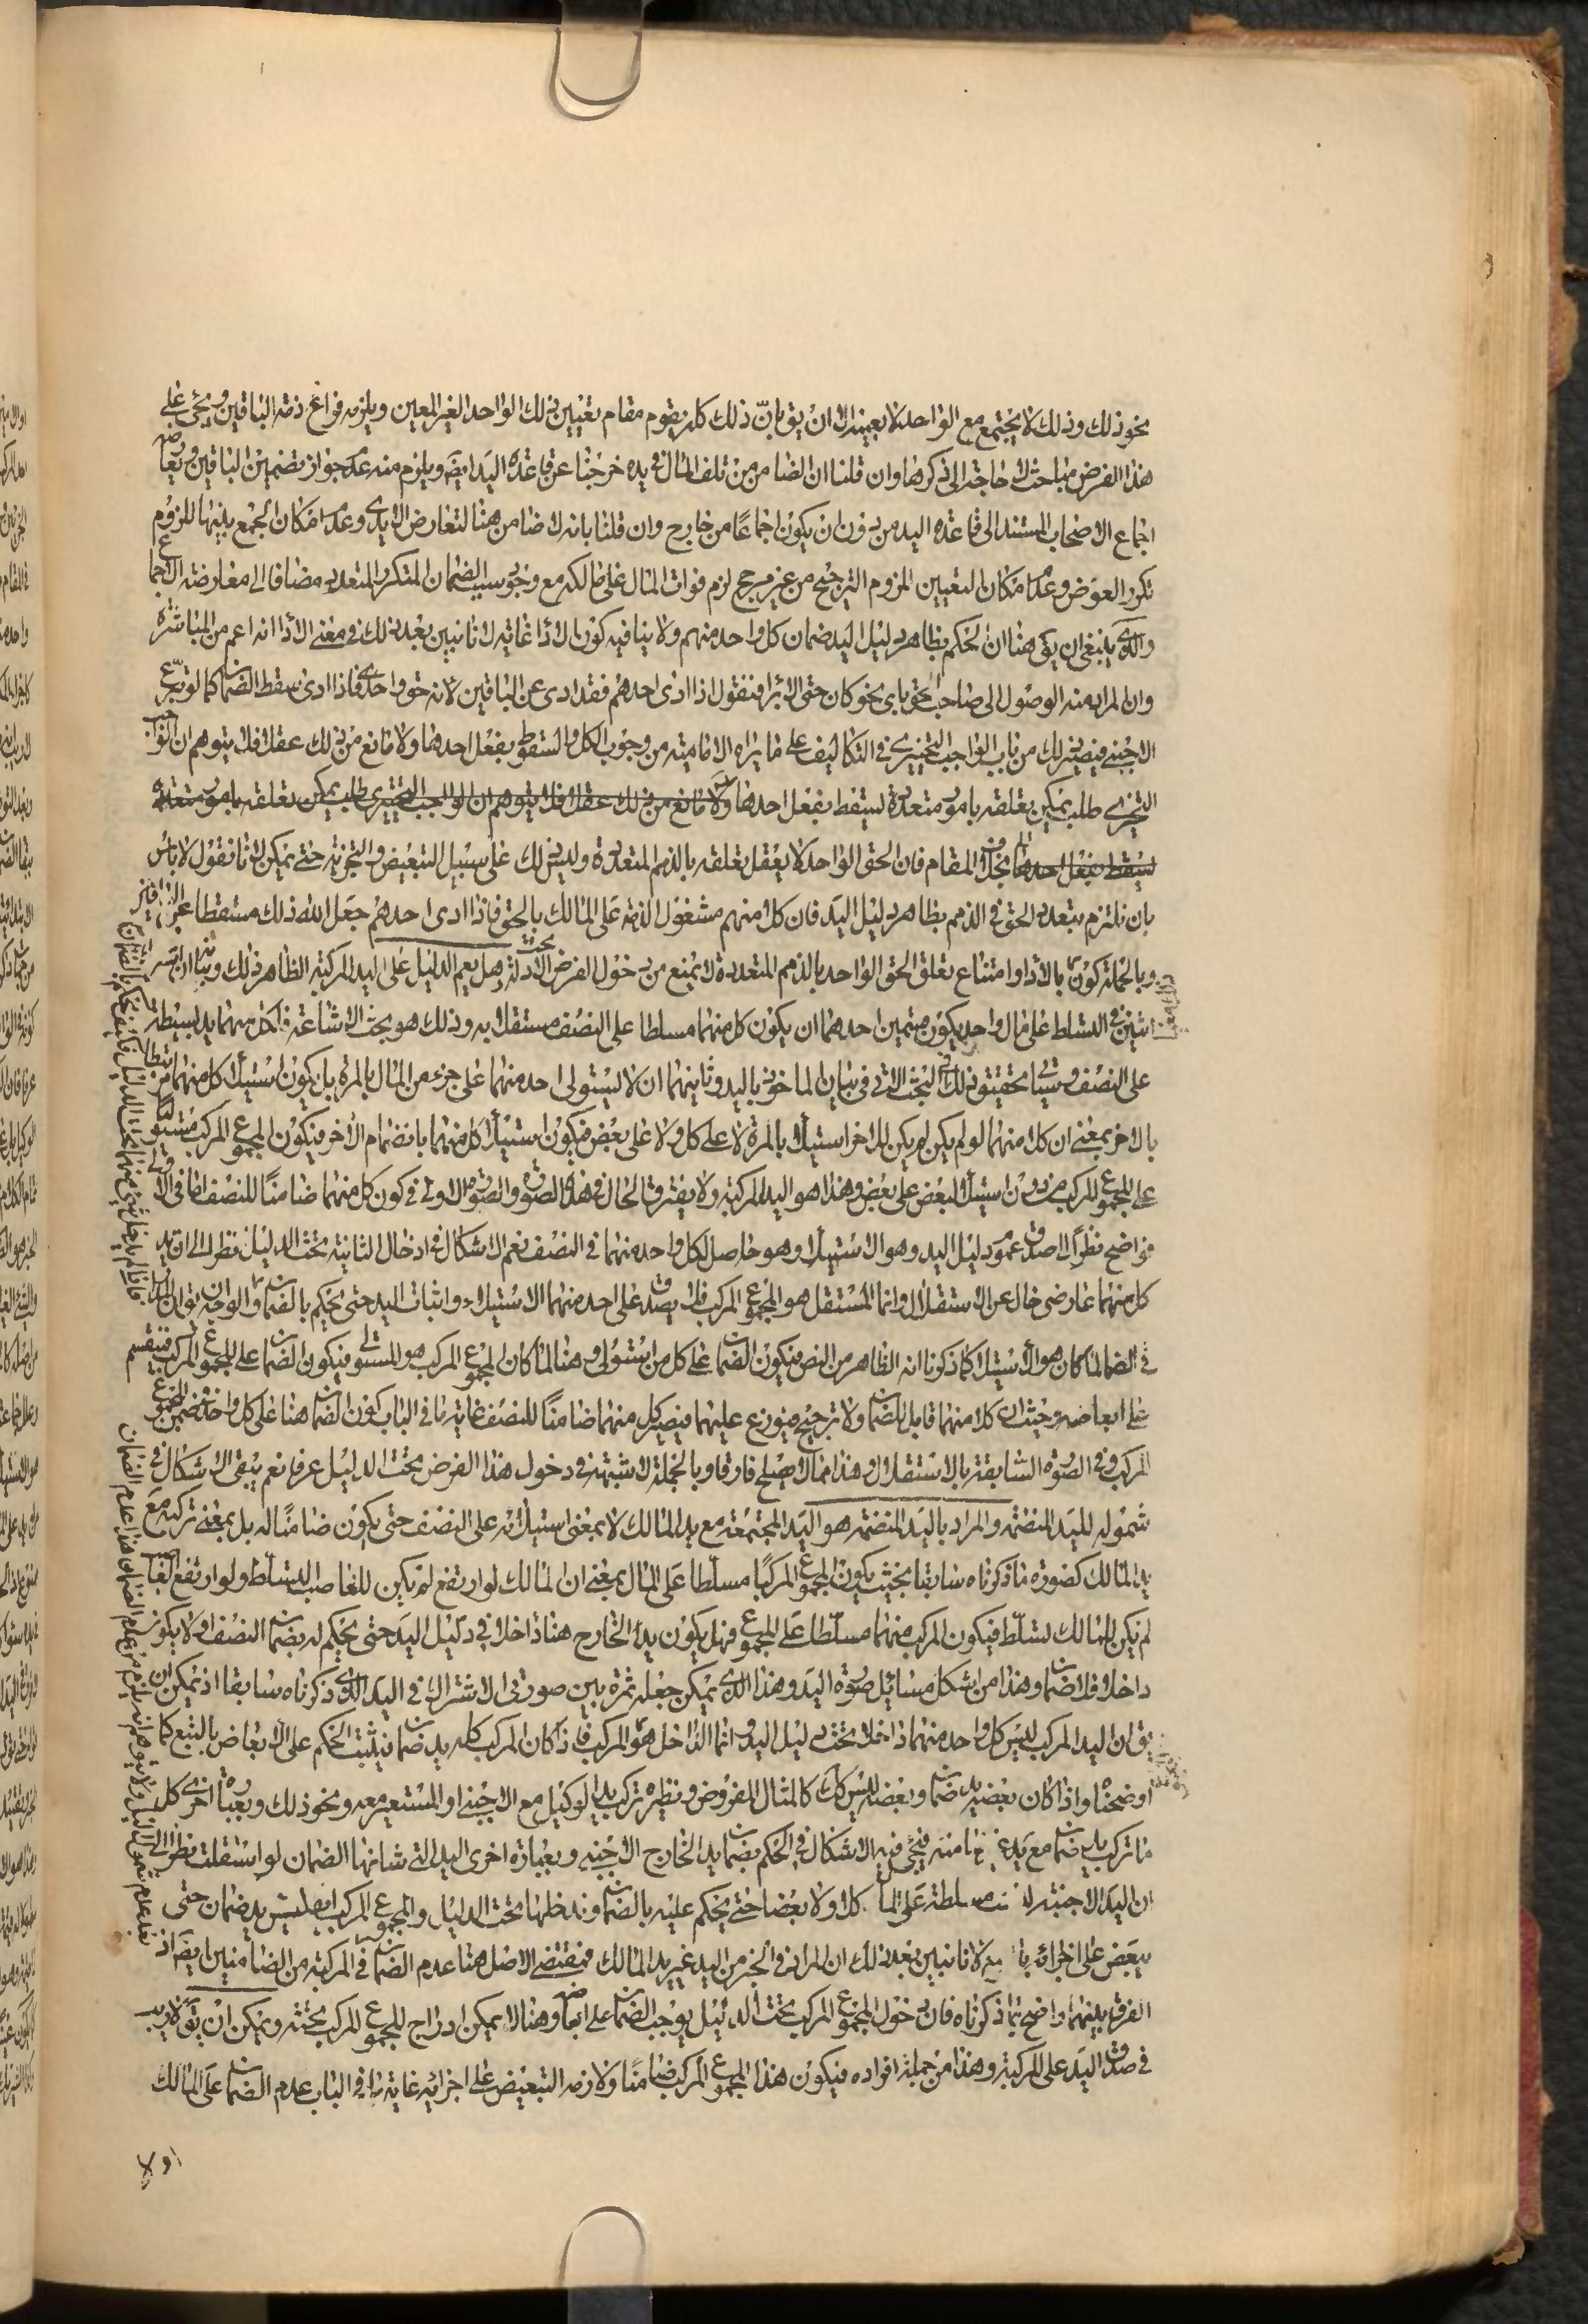 نحو ذلك وذلك لا يجتمع مع الواحد لا بعينه الا ان يق بان ذلك كله يقوم مقام تعيين ذلك الواحد الغير المعين ويلزمه فراغ ذمة الباقين ويجئ على
هذا الفرض مباحث لا حاجة الى ذكرها وان قلنا ان الضامن من تلف المال في يده خرجنا عن قاعدة اليد ايضا ويلزم منه عدم جواز تضمين الباقين ويعارضه
اجماع الاصحاب المستند الى قاعدة اليد من دون ان يكون اجماعا من خارج وان قلنا بانه لا ضامن هنا لتعارض الايدى وعدم امكان الجمع بينها للزوم
تكرر العوض وعدم امكان التعيين للزوم الترجيح من غير مرجح لزم فوات المال على مالكه مع وجود سبب الضمان المتكرر المتعدد مضافا الى معارضة الاجماع
والذي ينبغى ان يق هنا ان الحكم بظاهر دليل اليد ضمان كل واحد منهم ولا ينافيه كون الاداء غاية لانا نبين بعد ذلك في معنى الاداء انه اعم من المباشرة
وان المراد منه الوصول الى صاحب الحق باي نحو كان حتى الابراء فنقول اذا ادى احدهم فقد ادى عن الباقين لانه حق واحد فاذا ادى سقط الضمان كما لو تبرع
الاجنبي فيصير ذلك من باب الواجب التخييري في التكاليف على ما يراه الامامية من وجوب الكل والسقوط بفعل احدهما ولا مانع من ذلك عقلا فلا يتوهم ان الواجب
التخييري طلب يمكن تعلقه بامور متعددة يسقط بفعل احدها ولا مانع من ذلك عقلا فلا يتوهم ان الواجب التخييري طلب يمكن تعلقه بامور متعددة
يسقط بفعل احدها بخلاف المقام فان الحق الواحد لا يعقل تعلقه بالذمم المتعددة وليس ذلك على سبيل التبعيض والتجزية حتى يمكن لانا نقول لا باس
بان نلتزم بتعدد الحق في الذمم بظاهر دليل اليد فان كلا منهم مشغول الذمة على المالك بالحق فاذا ادى احدهم جعل الله ذلك مسقطا عن الباقين
وبالجملة كون بالاداء وامتناع تعلق الحق الواحد بالذمم المتعددة لا يمنع من دخول الفرض تحت الادلة وهل يعم الدليل على اليد المركبة الظاهر ذلك وبيانه
اثنين في التسلط على مال واحد يكون بقسمين احدهما ان يكون كل منهما مسلطا على النصف مستقلا به وذلك هو بحث الاشاعة فلكل منهما يد بسيطة
على النصف وسيأتي تحقيق ذلك في البحث الاتي في بيان الماخوذ باليد وثانيهما ان لا يستولى احد منهما على جزء من المال بالمرة بل يكون استيلاء كل منهما مرتبطا
بالاخر بمعنى ان كلا منهما لو لم يكن لم يكن للاخر استيلاء بالمرة لا على كل ولا على بعض فيكون استيلاء كل منهما بانضمام الاخر فيكون المجموع المركب مستوليا
على المجموع المركب من دون استيلاء البعض على بعض وهذا هو اليد المركبة ولا يفترق الحال في هذه الصورة والصورة الاولى في كون كل منهما ضامنا للنصف اما في الاولى
فواضح نظرا الى صدق عموم دليل اليد وهو الاستيلاء وهو حاصل لكل واحد منهما في النصف نعم الاشكال في ادخال الثانية تحت الدليل نظرا الى ان يد
كل منهما عارضي خال عن الاستقلال وانما المستقل هو المجموع المركب فلا يصدق على احد منهما الاستيلاء واثبات اليد حتى يحكم بالضمان والوجه ان يق ان المدار
في الضمان لما كان هو الاستيلاء كما ذكرنا انه الظاهر من النص فيكون الضمان على كل من استولى وهنا لما كان المجموع المركب هو المستولى فيكون الضمان على المجموع المركب فينقسم
على ابعاضه وحيث ان كلا منهما قابل للضمان ولا ترجيح فيوزع عليهما فيصير كل منهما ضامنا للنصف غاية ما في الباب كون الضمان هنا على كل واحد في ضمن المجموع
المركب وفي الصورة السابقة بالاستقلال وهذا مما لا يصلح فارقا وبالجملة لا شبهة في دخول هذا الفرض تحت الدليل عرفا نعم يبقى الاشكال في
شموله لليد المنضمة والمراد باليد المنضمة هو اليد المجتمعة مع يد المالك لا بمعنى استيلائه على النصف حتى يكون ضامنا له بل بمعنى تركبه مع
يد المالك كصورة ما ذكرناه سابقا بحيث يكون المجموع المركب مسلطا على المال بمعنى ان المالك لو ارتفع لم يكن للغاصب التسلط ولو ارتفع الغاصب
لم يكن للمالك تسلط فيكون المركب منهما مسلطا على المجموع فهل يكون يد الخارج هنا داخلا في دليل اليد حتى يحكم له بضمان النصف او لا يكون
داخلا فلا ضمان وهذا من اشكل مسائل صورة اليد وهذا الذي يمكن جعله ثمرة بين صورتي الاشتراك في اليد الذي ذكرناه سابقا اذ يمكن ان
يق ان اليد المركب ليس كل واحد منهما داخلا تحت دليل اليد وانما الداخل هو المركب فاذا كان المركب كله يد ضمان فيثبت الحكم على الابعاض بالتبع كما
اوضحناه واذا كان بعضه يد ضمان وبعضه ليس كك كالمثال المفروض ونظيره تركب يد الوكيل مع الاجنبي او المستعير معه ونحو ذلك وبعبارة اخرى كل
ما تركب يد ضمان مع يد غير ضامنة فيجئ فيه الاشكال في الحكم بضمان يد الخارج الاجنبي وبعبارة اخرى اليد التي شانها الضمان لو استقلت نظرا الى
ان اليد الاجنبية ليست مسلطة على المال كلا ولا بعضا حتى يحكم عليه بالضمان وندخلها تحت الدليل والمجموع المركب ايضا ليس يد ضمان حتى
يبعض على اجزائه بالتبع لانا نبين بعد ذلك ان المراد في الخبر من اليد غير يد المالك فمقتضى الاصل هنا عدم الضمان في المركبة من الضامنين ايضا اذ
الفرق بينهما واضح بما ذكرناه فان دخول المجموع المركب تحت الدليل يوجب الضمان على ابعاضه وهنا لا يمكن ادراج المجموع المركب تحته ويمكن ان يق لا ريب
في صدق اليد على المركبة وهذا من جملة افراده فيكون هذا المجموع المركب ضامنا ولازمه التبعيض على اجزائه غاية ما في الباب عدم الضمان على المالك